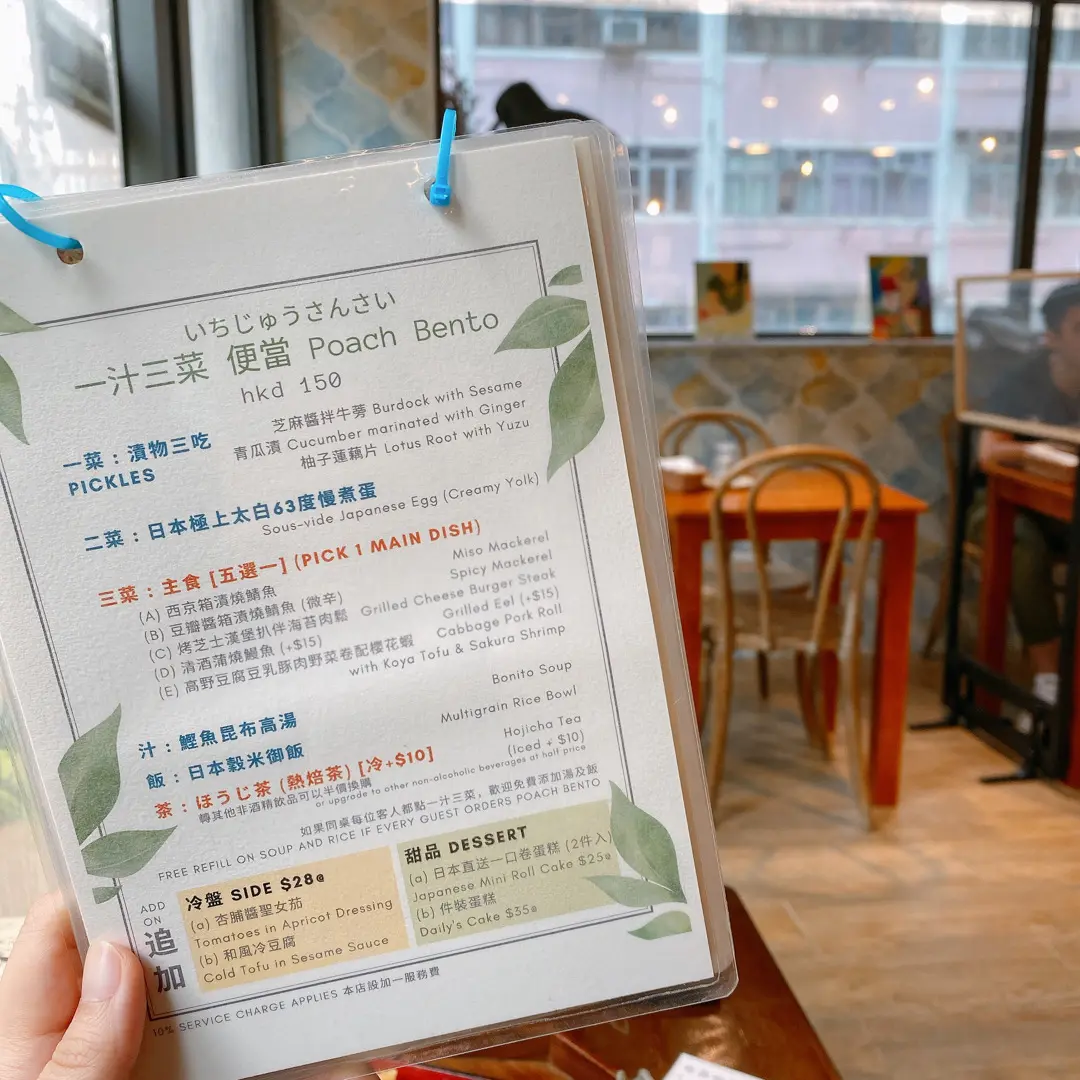 いちじゅうさんさい
一汁三菜 便當 Poach Bento
hkd 150
一菜：漬物三吃
PICKLES
芝麻醬拌牛蒡 Burdock with Sesame
青瓜漬 Cucumber marinated with Ginger
柚子蓮藕片 Lotus Root with Yuzu
二菜：日本極上太白63度慢煮蛋
Sous-vide Japanese Egg (Creamy Yolk)
三菜：主食 [五選一] (PICK 1 MAIN DISH)
(A) 西京箱漬燒鯖魚 Miso Mackerel
(B) 豆瓣醬箱漬燒鯖魚 (微辛) Spicy Mackerel
(C) 烤芝士漢堡扒伴海苔肉鬆 Grilled Cheese Burger Steak
(D) 清酒蒲燒鰻魚 (+$15) Grilled Eel (+$15)
(E) 高野豆腐豆乳豚肉野菜卷配櫻花蝦 Cabbage Pork Roll
with Koya Tofu & Sakura Shrimp
汁：鰹魚昆布高湯 Bonito Soup
飯：日本穀米御飯 Multigrain Rice Bowl
茶：ほうじ茶 (熱焙茶) [冷+$10] Hojicha Tea
(Iced + $10)
轉其他非酒精飲品可以半價換購
or upgrade to other non-alcoholic beverages at half price
如果同桌每位客人都點一汁三菜，歡迎免費添加湯及飯
FREE REFILL ON SOUP AND RICE IF EVERY GUEST ORDERS POACH BENTO
ADD
ON
追
加
冷盤 SIDE $28@
(a) 杏脯醬聖女茄
Tomatoes in Apricot Dressing
(b) 和風冷豆腐
Cold Tofu in Sesame Sauce
甜品 DESSERT
(a) 日本直送一口卷蛋糕 (2件入)
Japanese Mini Roll Cake $25@
(b) 件裝蛋糕
Daily's Cake $35@
10% SERVICE CHARGE APPLIES 本店設加一服務費